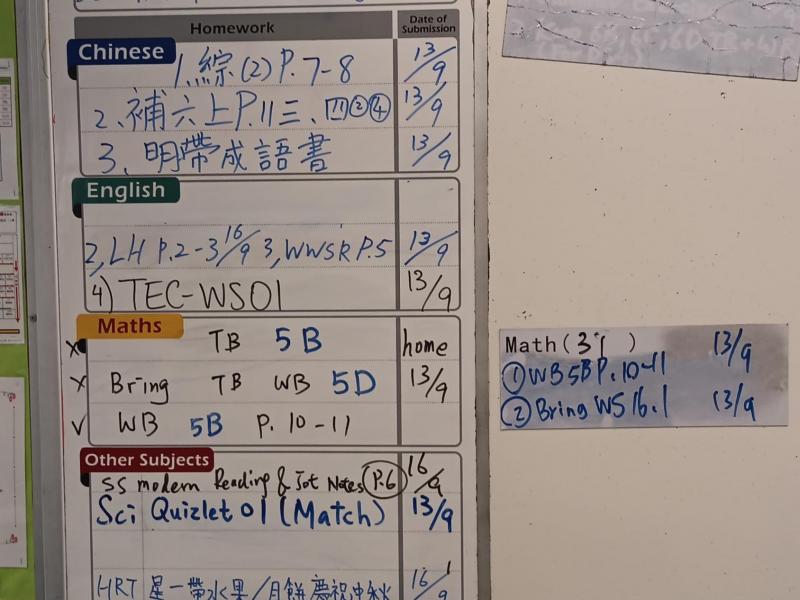 Homework
Date of Submission
Chinese
1.綜(2) P.7-8 13/9
2、補六上P.11三、四②④ 13/9
3、明帶成語書 13/9
English
2, LH P.2-3 16/9 3, WWSR P.5 13/9
4) TEC-WS01 13/9
Maths
x TB 5B home
x Bring TB WB 5D 13/9
✓ WB 5B P. 10-11
Other Subjects
SS modern Reading & Jot Notes (P.6) 16/9
Sci Quizlet 01 (Match) 13/9
HRT 星一帶水果/月餅慶祝中秋 16/9
Math ( ) 13/9
① WB 5B P. 10-11
② Bring WS 16.1 13/9